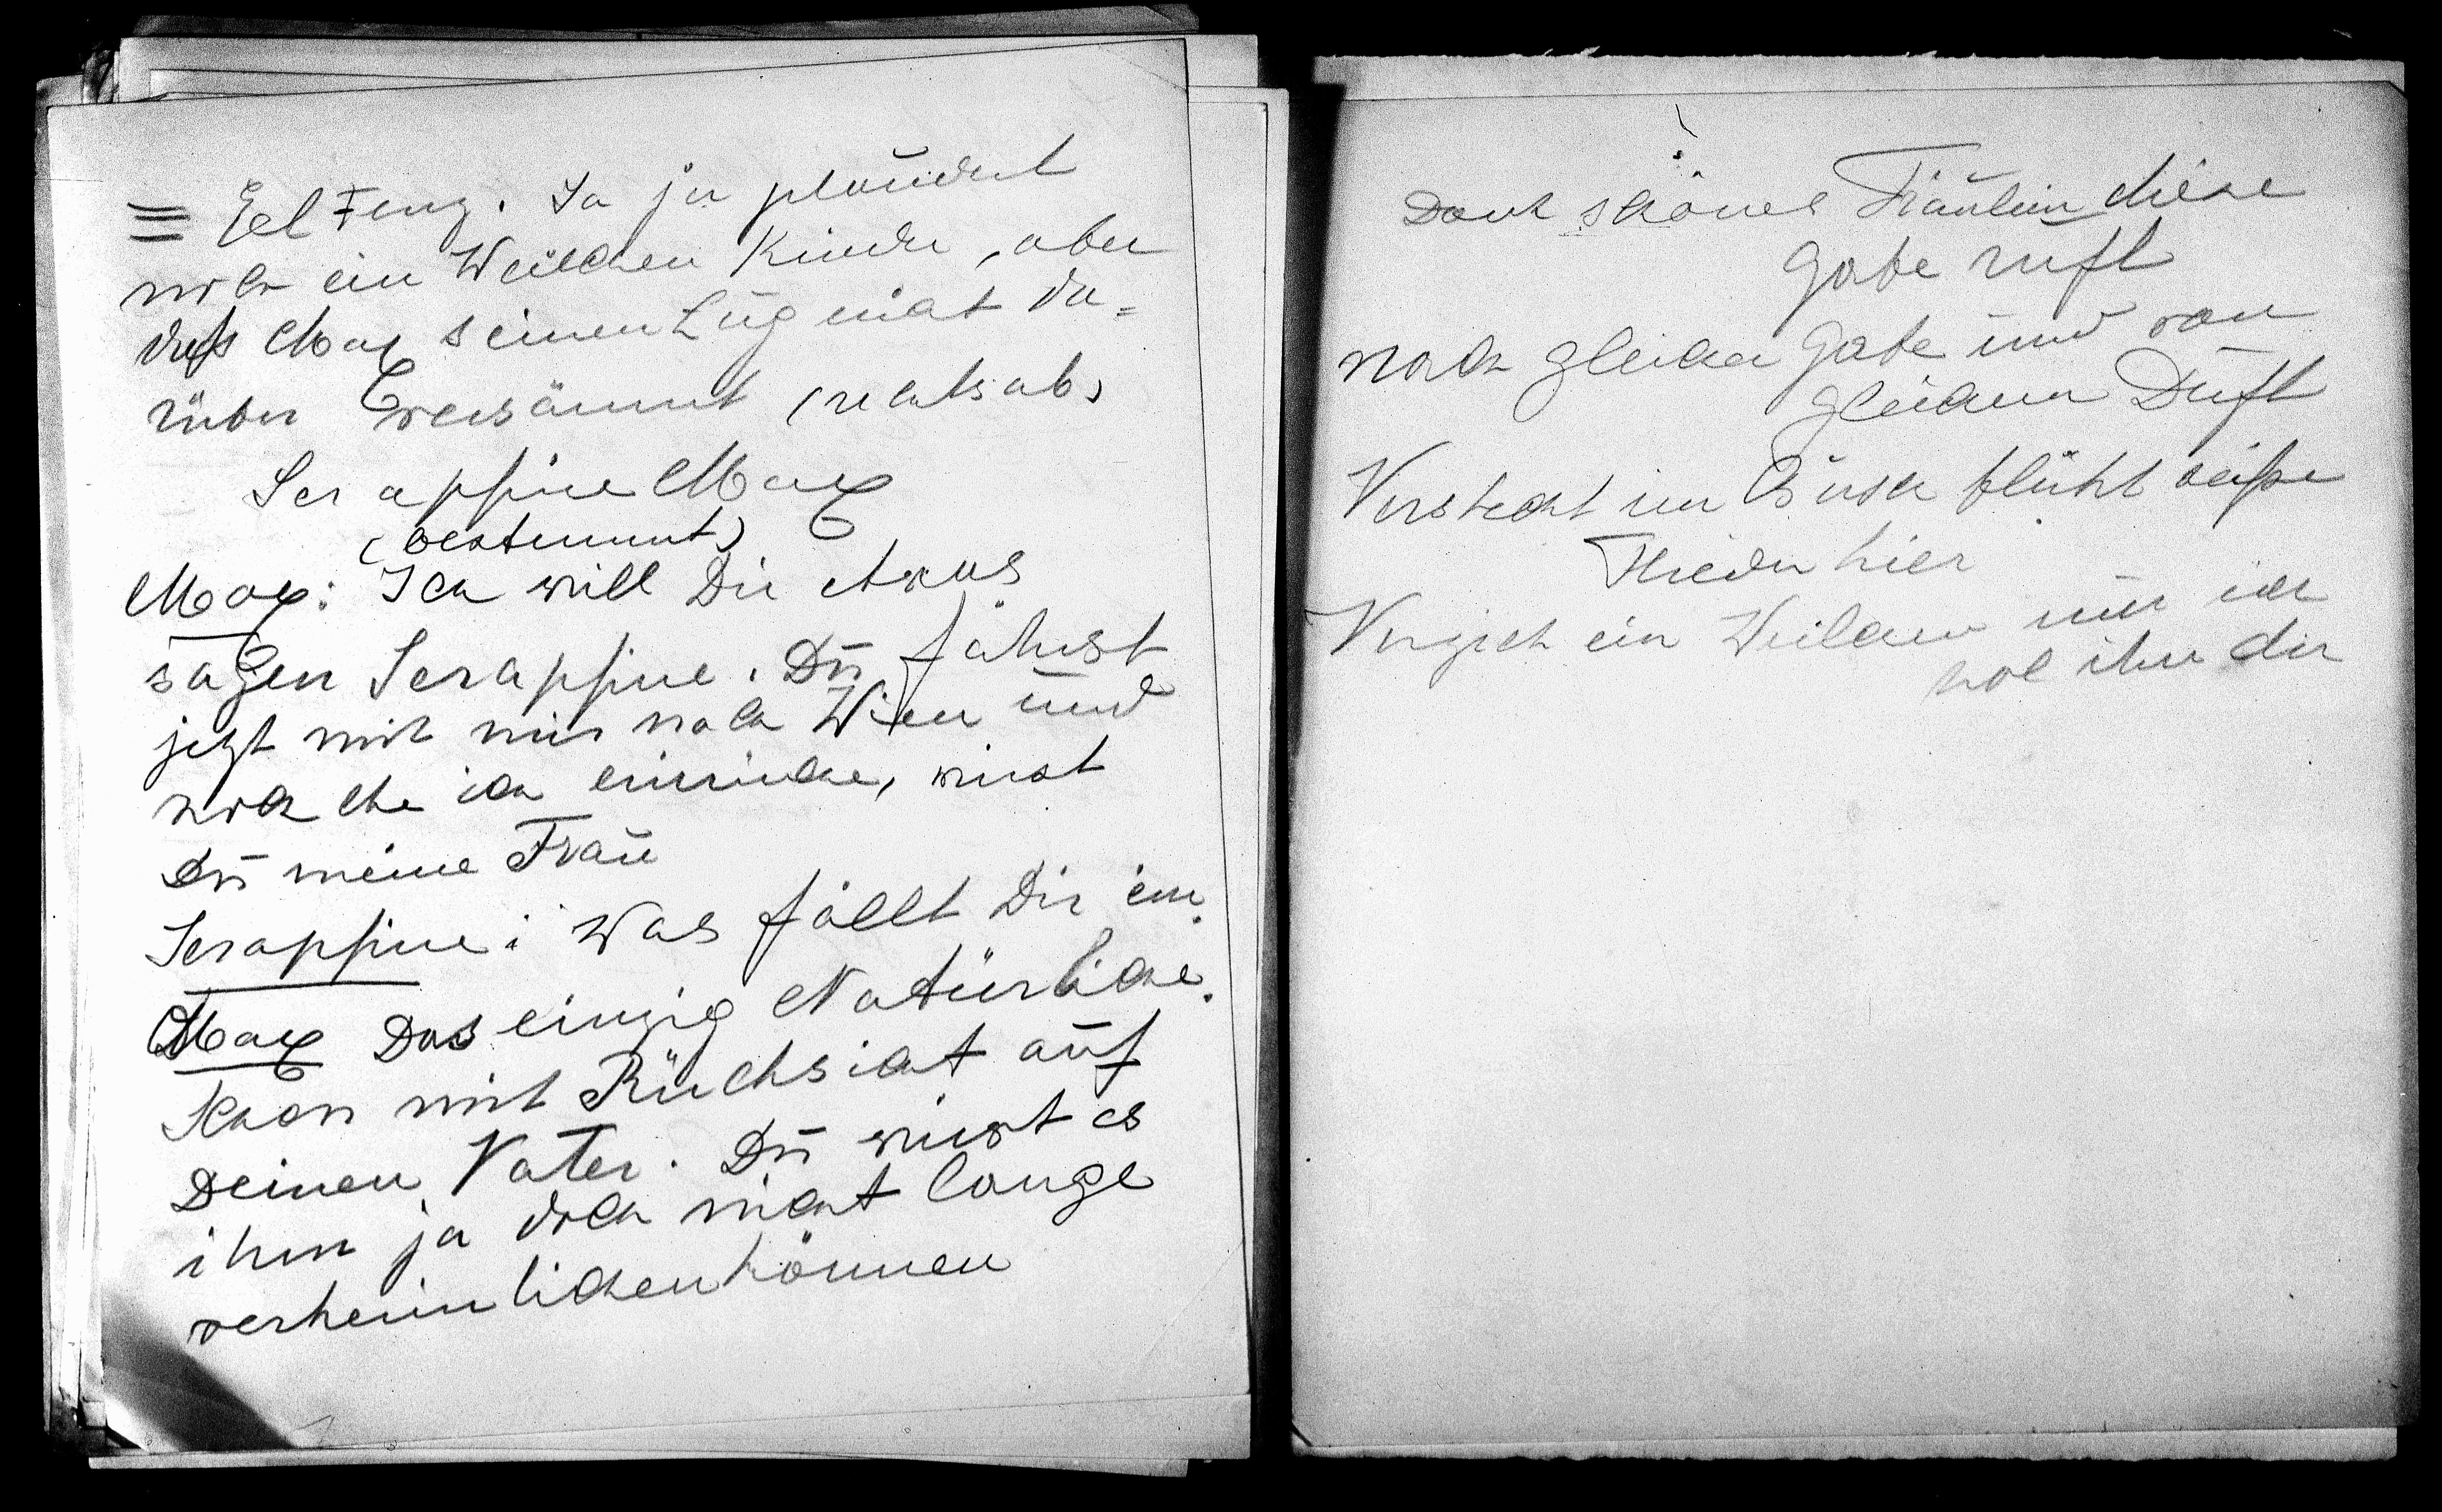 = Edl Feng. Ja ja plaudert
noch ein Weilchen Kinder, aber
daß Max seinen Zug nicht da=
rüber versäumt (rechts ab)
Seraphine Max
(bestimmt)
Max: Ich will Dir etwas
sagen Seraphine. Du fährst
jetzt mit mir nach Wien und
noch ehe ich einrücke, wirst
Du meine Frau
Seraphine: Was fällt Dir ein.
Max Das einzig Natürliche.
Schon mit Rücksicht auf
Deinen Vater. Du wirst es
ihm ja doch nicht lange
verheimlichen können
Dank schönes Fräulein diese
Gabe ruft
nach gleicher Gabe und von
gleichem Duft
Versteckt im Busch blüht weißer
Flieder hier
Verzieh ein Weilchen nur ich
hol ihn dir